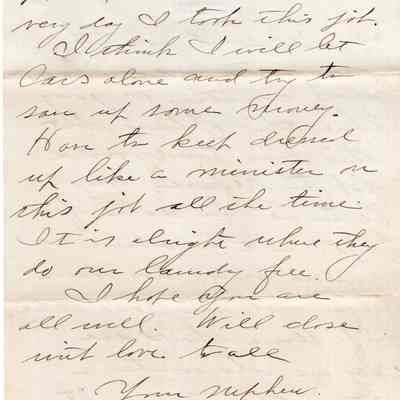 very day I took this job.
I think I will let
Cars alone and try to
save up some money.
Have to keep dressed
up like a minister on
this job all the time.
It is alright where they
do our laundry free.
I hope you are
all well. Will close
with love to all
Your nephew.